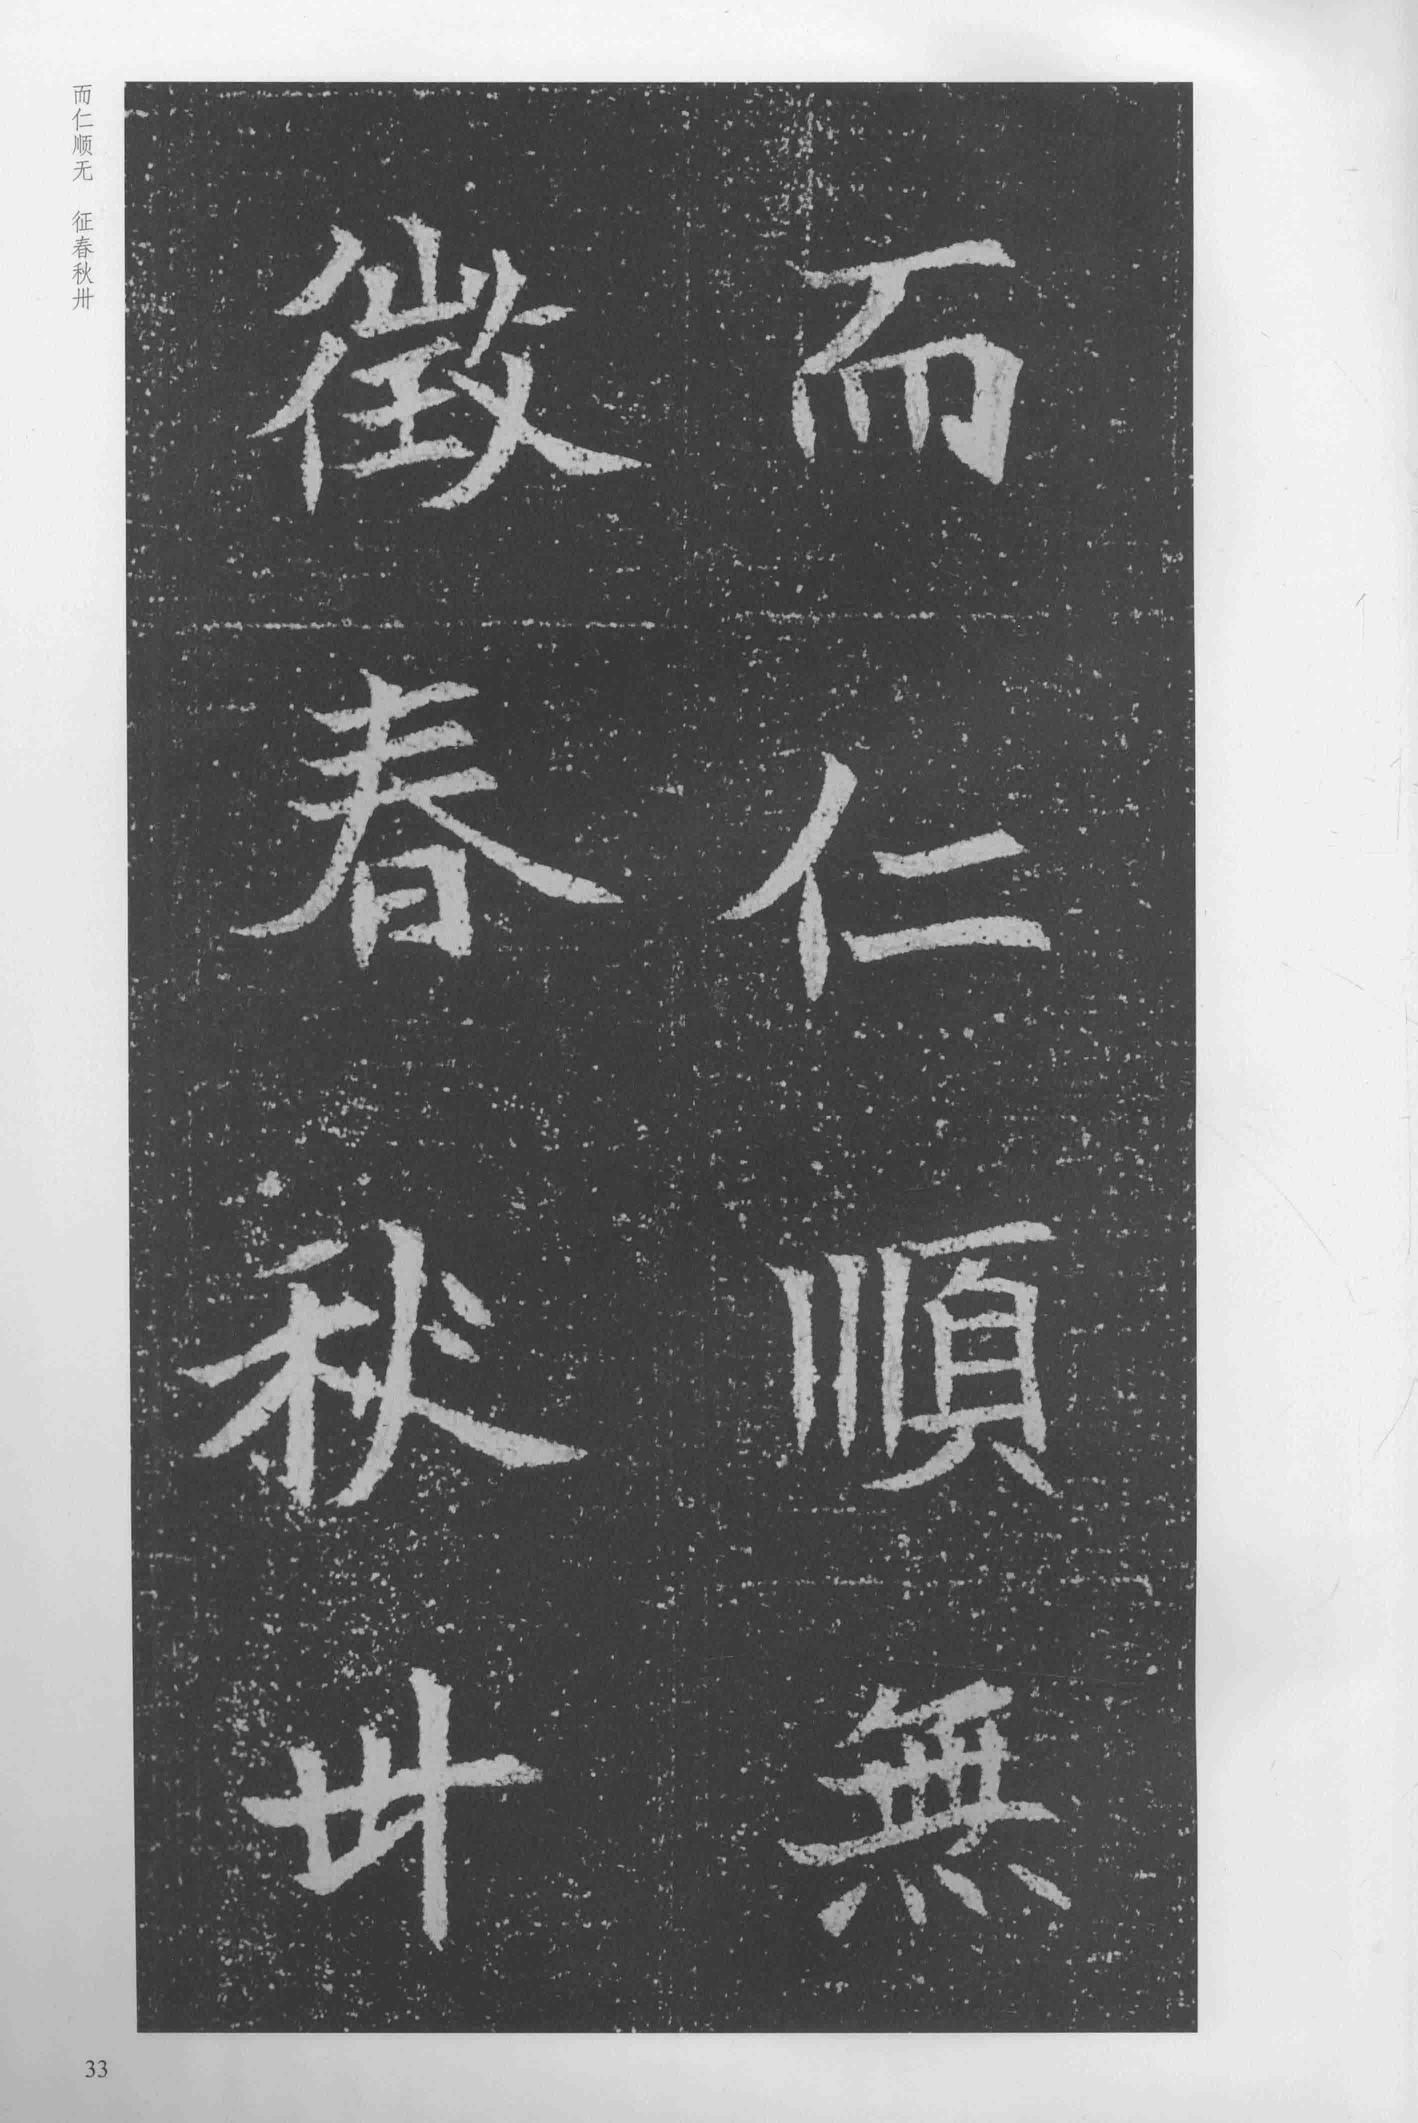 而仁順無
徵春秋卅
而仁顺无 征春秋卅
33